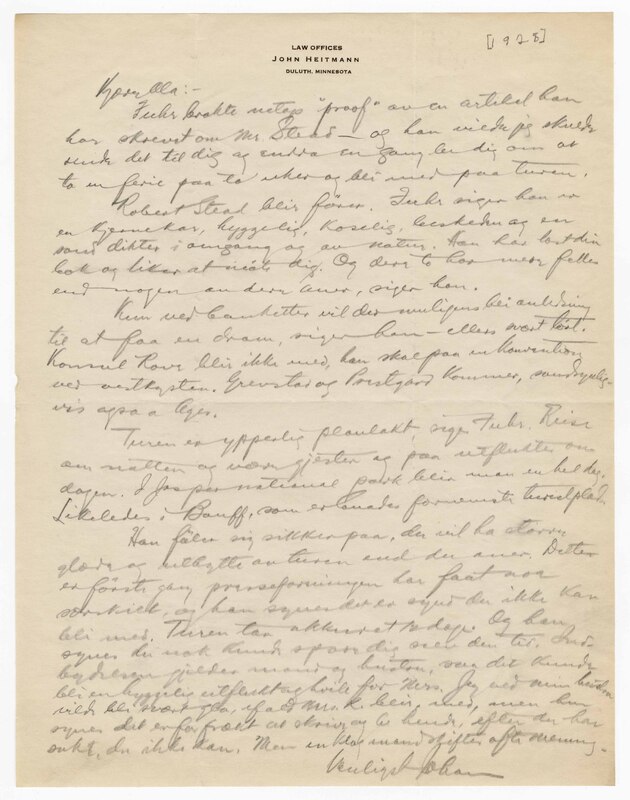 [1928]
LAW OFFICES
JOHN HEITMANN
DULUTH, MINNESOTA
Kjære Ola:-
Fuhr brakte netop "proof" av en artikel han
har skrevet om Mr Stead — og han vilde jeg skulde
sende det til dig og endda en gang be dig om at
ta en ferie paa to uker og bli med paa turen.
Robert Stead blir fører. Fuhr siger han er
en kjernekar, hyggelig, koselig, beskeden og en
sand dikter i omgang og av natur. Han har læst din
bok og liker at møte dig. Og dere to har mere felles
end nogen av dere aner, siger han.
Kun ved banketter vil der muligens bli anledning
til at faa en dram, siger han — ellers svært tørt.
Konsul Hove blir ikke med, han skal paa en konvention
ved vestkysten. Grevstad og Prestgard kommer, sandsynlig-
vis ogsaa Ager.
Turen er ypperlig planlakt, siger Fuhr. Reise
om natten og være gjester og paa utflukter om
dagen. I Jasper national park blir man en hel dag.
Likeledes i Banff, som er landets fornemste turistplads.
Han føler sig sikker paa, du vil ha større
glæde og utbytte av turen end du aner. Dette
er første gang presseforeningen har faat noe
særskilt, og han synes det er synd du ikke kan
bli med. Turen tar akkurat 12 dage. Og han
synes du nok kunde spare dig selv den tid. Ind-
bydelsen gjelder mand og hustru, saa det kunde
bli en hyggelig utflukt og hvile for Mrs. Jeg ved min hustru
vilde bli svært gla, ifald Mrs. R. blir med, men hun
synes det er for frækt at skrive og be hende, efter du har
sakt, du ikke kan. Men en klok mand skifter ofte mening.-
Venligst Johan